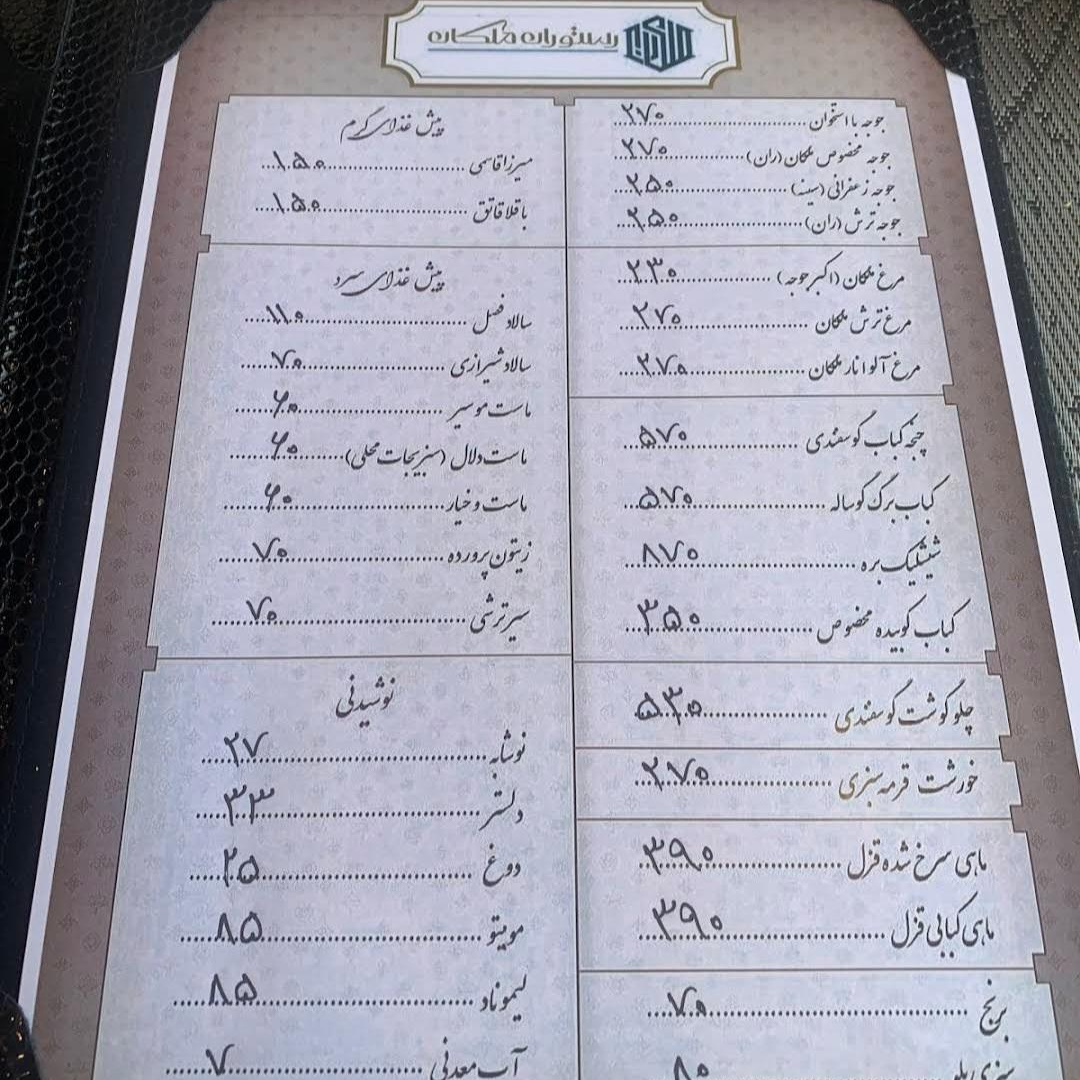 رستوران ملکان
جوجه با استخوان ۲۷۰
جوجه مخصوص ملکان (ران) ۲۷۰
جوجه زعفرانی (سینه) ۲۵۰
جوجه ترش (ران) ۲۵۰
مرغ ملکان (اکبر جوجه) ۲۳۰
مرغ ترش ملکان ۲۷۰
مرغ آلو انار ملکان ۲۷۰
چنجه کباب گوسفندی ۵۷۰
کباب برگ گوساله ۵۷۰
شیشلیک بره ۸۷۰
کباب کوبیده مخصوص ۳۵۰
چلو گوشت گوسفندی ۵۳۰
خورشت قرمه سبزی ۲۷۰
ماهی سرخ شده قزل ۳۹۰
ماهی کبابی قزل ۳۹۰
برنج ۷۰
سبزی پلو ۸۰
پیش غذای گرم
میرزا قاسمی ۱۵۰
باقلا قاتق ۱۵۰
پیش غذای سرد
سالاد فصل ۱۱۰
سالاد شیرازی ۷۰
ماست موسیر ۶۰
ماست دلال (سبزیجات محلی) ۶۰
ماست و خیار ۶۰
زیتون پرورده ۷۰
سیر ترشی ۷۰
نوشیدنی
نوشابه ۲۷
دلستر ۳۳
دوغ ۲۵
مویتو ۸۵
لیموناد ۸۵
آب معدنی ۷